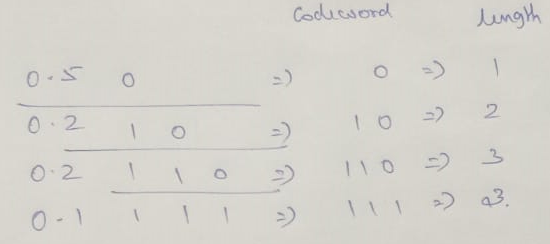 Codeword length
0.5 0 => 0 => 1
0.2 1 0 => 10 => 2
0.2 1 1 0 => 110 => 3
0.1 1 1 1 => 111 => 3.